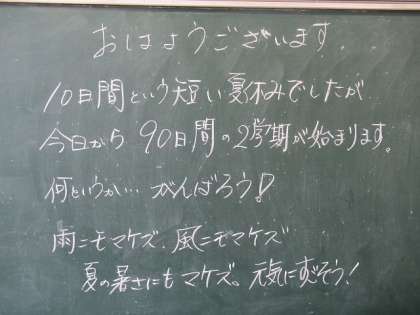 おはようございます.
10日間という短い夏休みでしたが
今日から90日間の2学期が始まります。
何というか…がんばろう!
雨ニモマケズ、風ニモマケズ
夏の暑さにもマケズ。元気にすごそう!